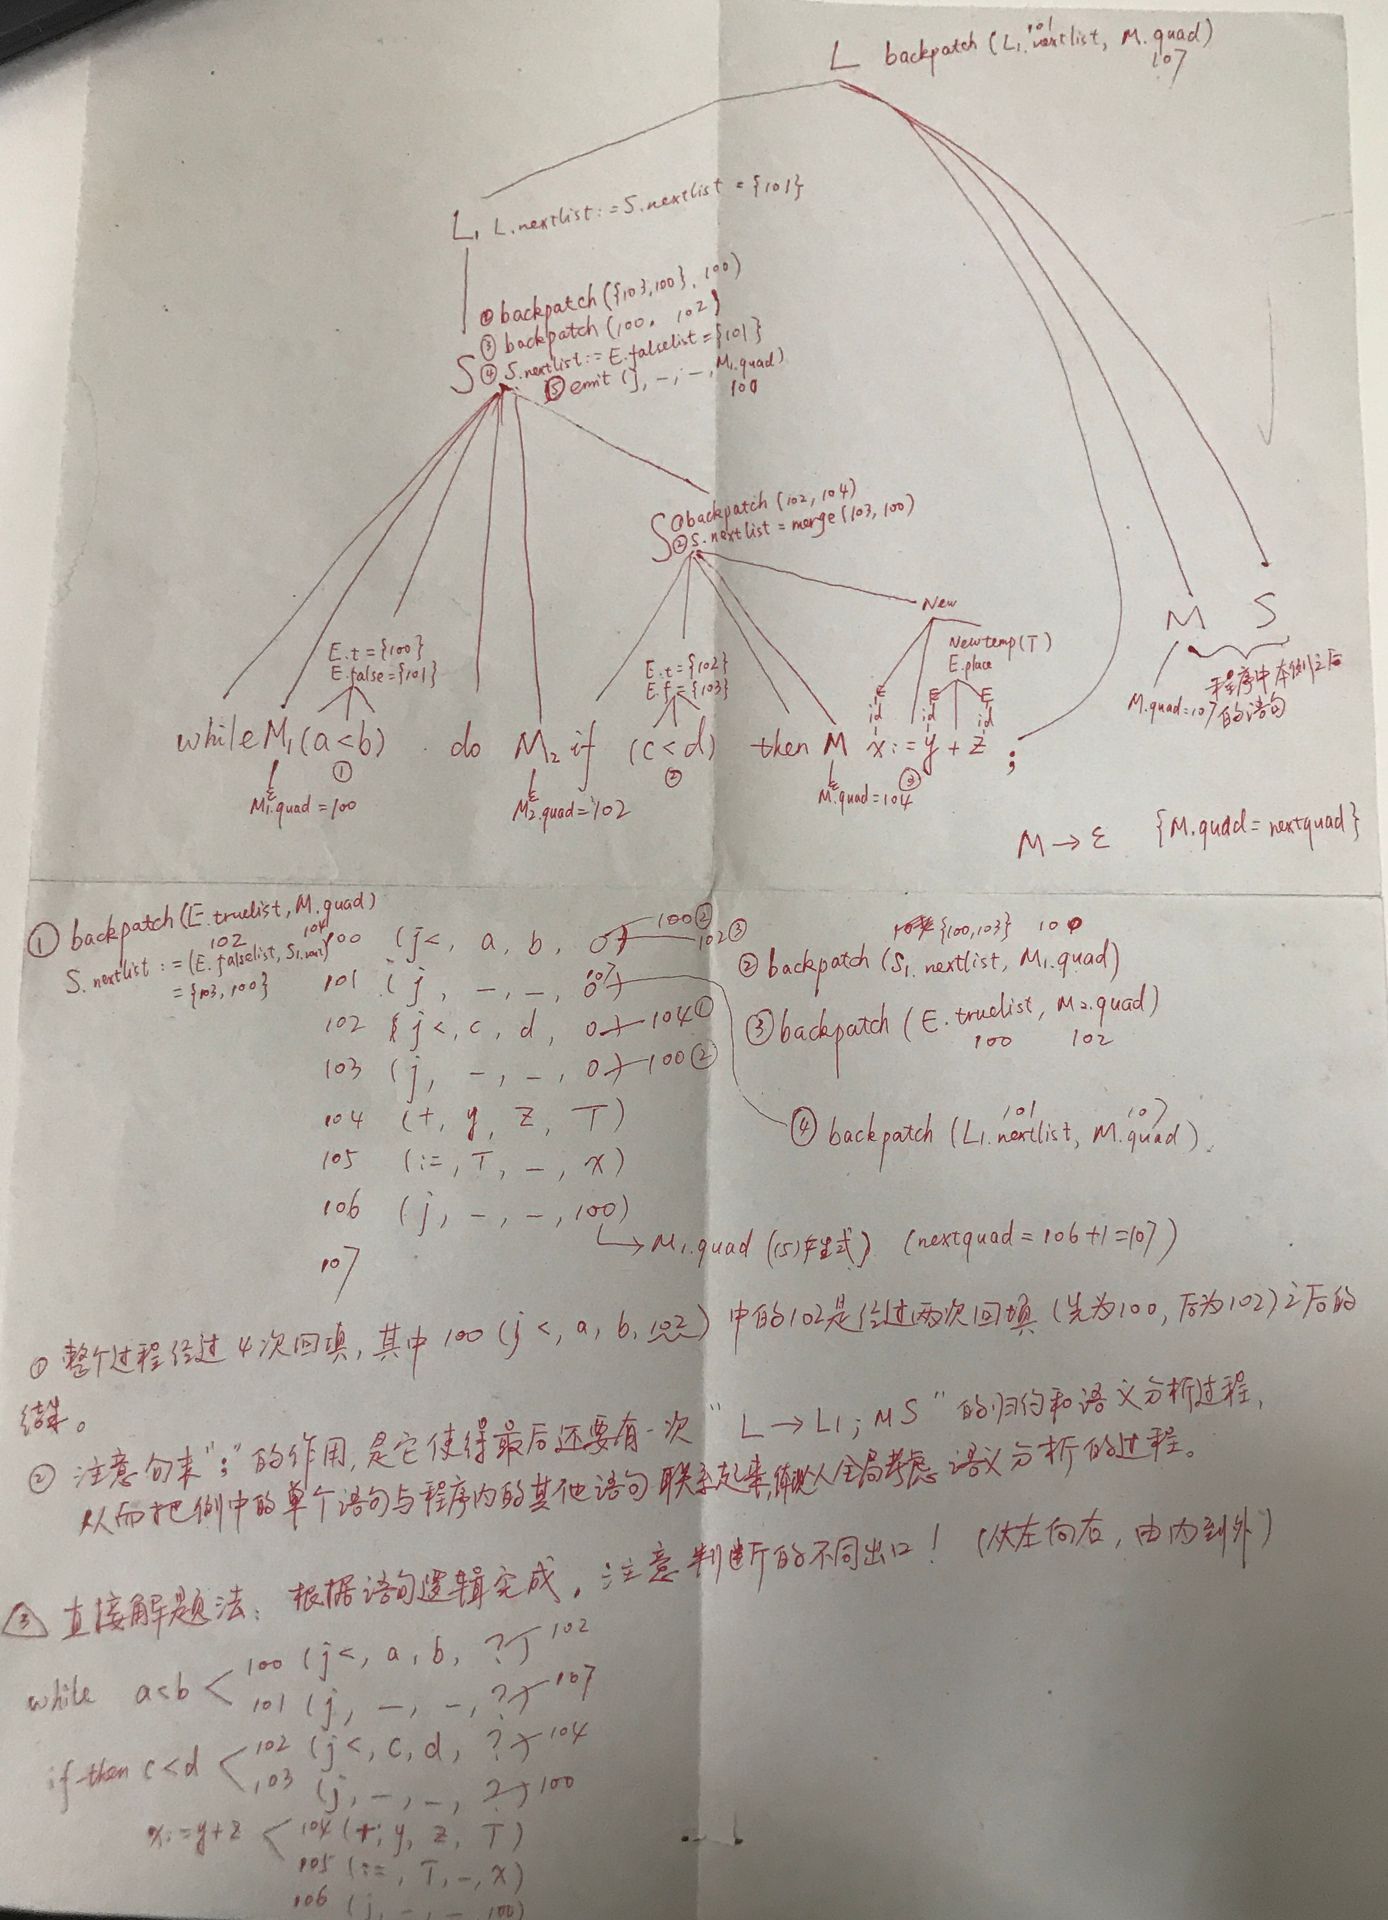 L backpatch (L₁.nextlist, M.quad)
101 107
L₁ L.nextlist := S.nextlist = {101}
② backpatch ({103,100}, 100)
③ backpatch (100, 102)
S ④ S.nextlist := E.falselist = {101}
⑤ emit (j, -, -, M₁.quad)
100
S ① backpatch (102, 104)
② S.nextlist = merge (103, 100)
New
E.t = {100}
E.false = {101}
E.t = {102}
E.f = {103}
Newtemp(T)
E.place
E E E
id id id
M S
M.quad=107
程序中本例之后
的语句
while M₁ (a<b) do M₂ if (c<d) then M x := y + z ;
① ② ③
ε ε ε
M₁.quad = 100 M₂.quad = 102 M.quad = 104
M → ε {M.quad = nextquad}
① backpatch (E.truelist, M.quad)
102 104
S.nextlist := (E.falselist, S₁.next)
= {103, 100}
100 (j<, a, b, 0) 100② 102③
101 (j, -, -, 0) 107
102 (j<, c, d, 0) 104①
103 (j, -, -, 0) 100②
104 (+, y, z, T)
105 (:=, T, -, x)
106 (j, -, -, 100)
→ M₁.quad (15)产生式) (nextquad = 106+1=107)
107
{100,103} 100
② backpatch (S₁.nextlist, M₁.quad)
③ backpatch (E.truelist, M₂.quad)
100 102
101 107
④ backpatch (L₁.nextlist, M.quad).
① 整个过程经过4次回填, 其中 100 (j<, a, b, 102) 中的102是经过两次回填 (先为100, 后为102) 之后的
结果。
② 注意句末";"的作用, 是它使得最后还要有一次 "L → L₁; M S" 的归约和语义分析过程,
从而把例中的单个语句与程序内的其他语句联系起来, 从全局考虑语义分析的过程。
③ 直接解题法: 根据语句逻辑完成, 注意判断的不同出口! (从左向右, 由内到外)
while a<b < 100 (j<, a, b, ?) 102
101 (j, -, -, ?) 107
if-then c<d < 102 (j<, c, d, ?) 104
103 (j, -, -, ?) 100
x:=y+z < 104 (+, y, z, T)
105 (:=, T, -, x)
106 (j, -, -, 100)